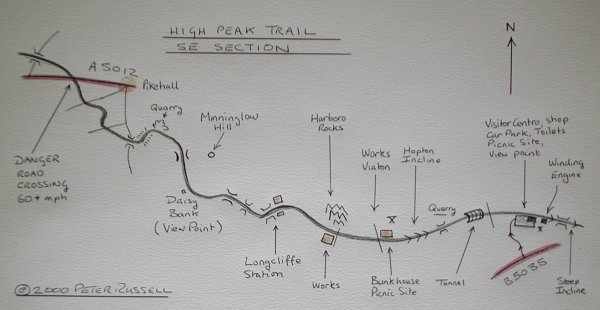 HIGH PEAK TRAIL
SE SECTION
N
A5012
Pikehall
Quarry
Minninglow
Hill
DANGER
ROAD
CROSSING
60+ mph
Daisy
Bank
(View Point)
Longcliffe
Station
Harboro
Rocks
Works
Works
Viaton
Hopton
Incline
Bunkhouse
Picnic Site
Quarry
Tunnel
Visitor Centre, shop
Car Park, Toilets
Picnic Site,
View point
Winding
Engine
B5035
Steep
Incline
© 2000 PETER RUSSELL